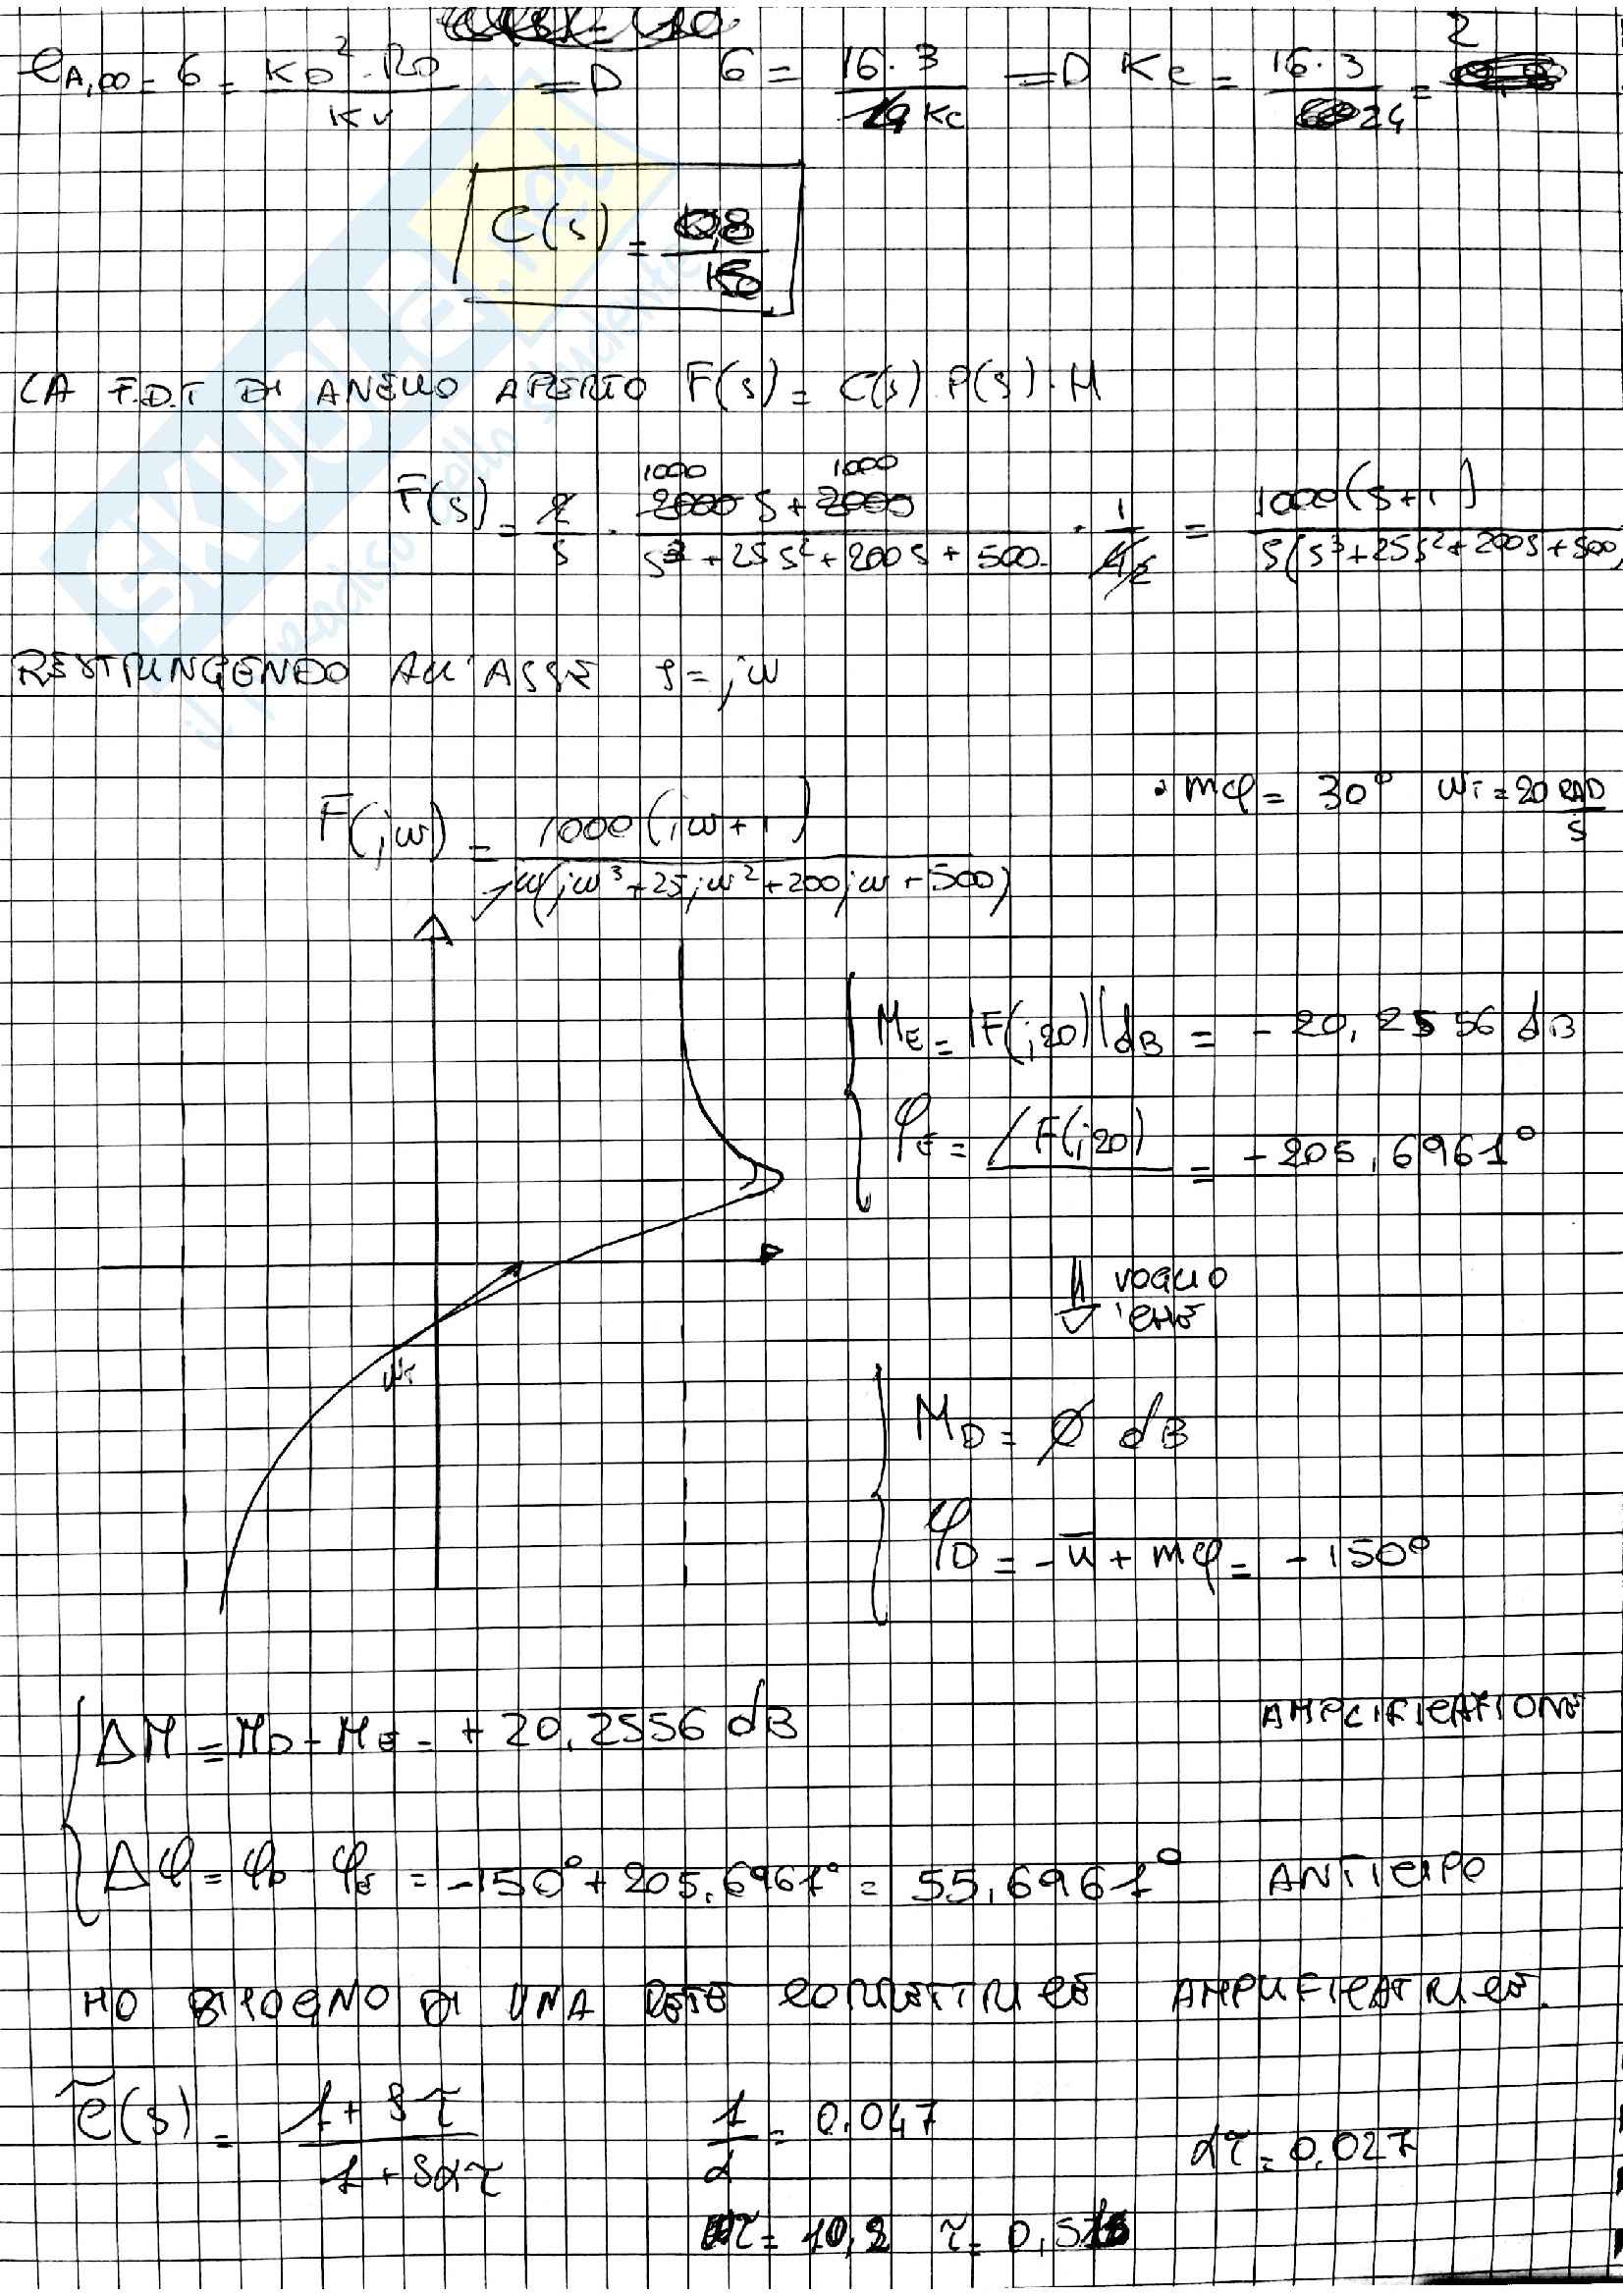 e_{A,∞} = 6 = K_D² · R_0 / K_V =D 6 = 16·3 / 4 K_C =D K_C = 16·3 / 24 = 2
C(s) =
LA F.D.T DI ANELLO APERTO F(s) = C(s) P(s) · H
F(s) = 2/s · (1000 s + 1000) / (s³ + 25s² + 200s + 500) · 1/ = 1000(s+1) / s(s³+25s²+200s+500)
RESTRINGENDO ALL'ASSE s=jω
• mφ = 30° ω_T = 20 RAD/S
F(jω) = 1000(jω+1) / jω(jω³+25jω²+200jω+500)
M_E = |F(j20)|dB = -20,2556 dB
φ_E = /F(j20) = -205,6961°
⇓ VOGLIO CHE
ω_T
M_D = ∅ dB
φ_D = -π + mφ = -150°
ΔM = M_D - M_E = +20,2556 dB AMPLIFICAZIONE
Δφ = φ_D - φ_E = -150° + 205,6961° = 55,6961° ANTICIPO
HO BISOGNO DI UNA RETE CORRETTRICE AMPLIFICATRICE.
C̃(s) = (1 + sτ) / (1 + sατ) 1/α = 0,047 ατ = 0,027
= 10,2 τ = 0,5
SKUOLA.net
il paradiso dello studente